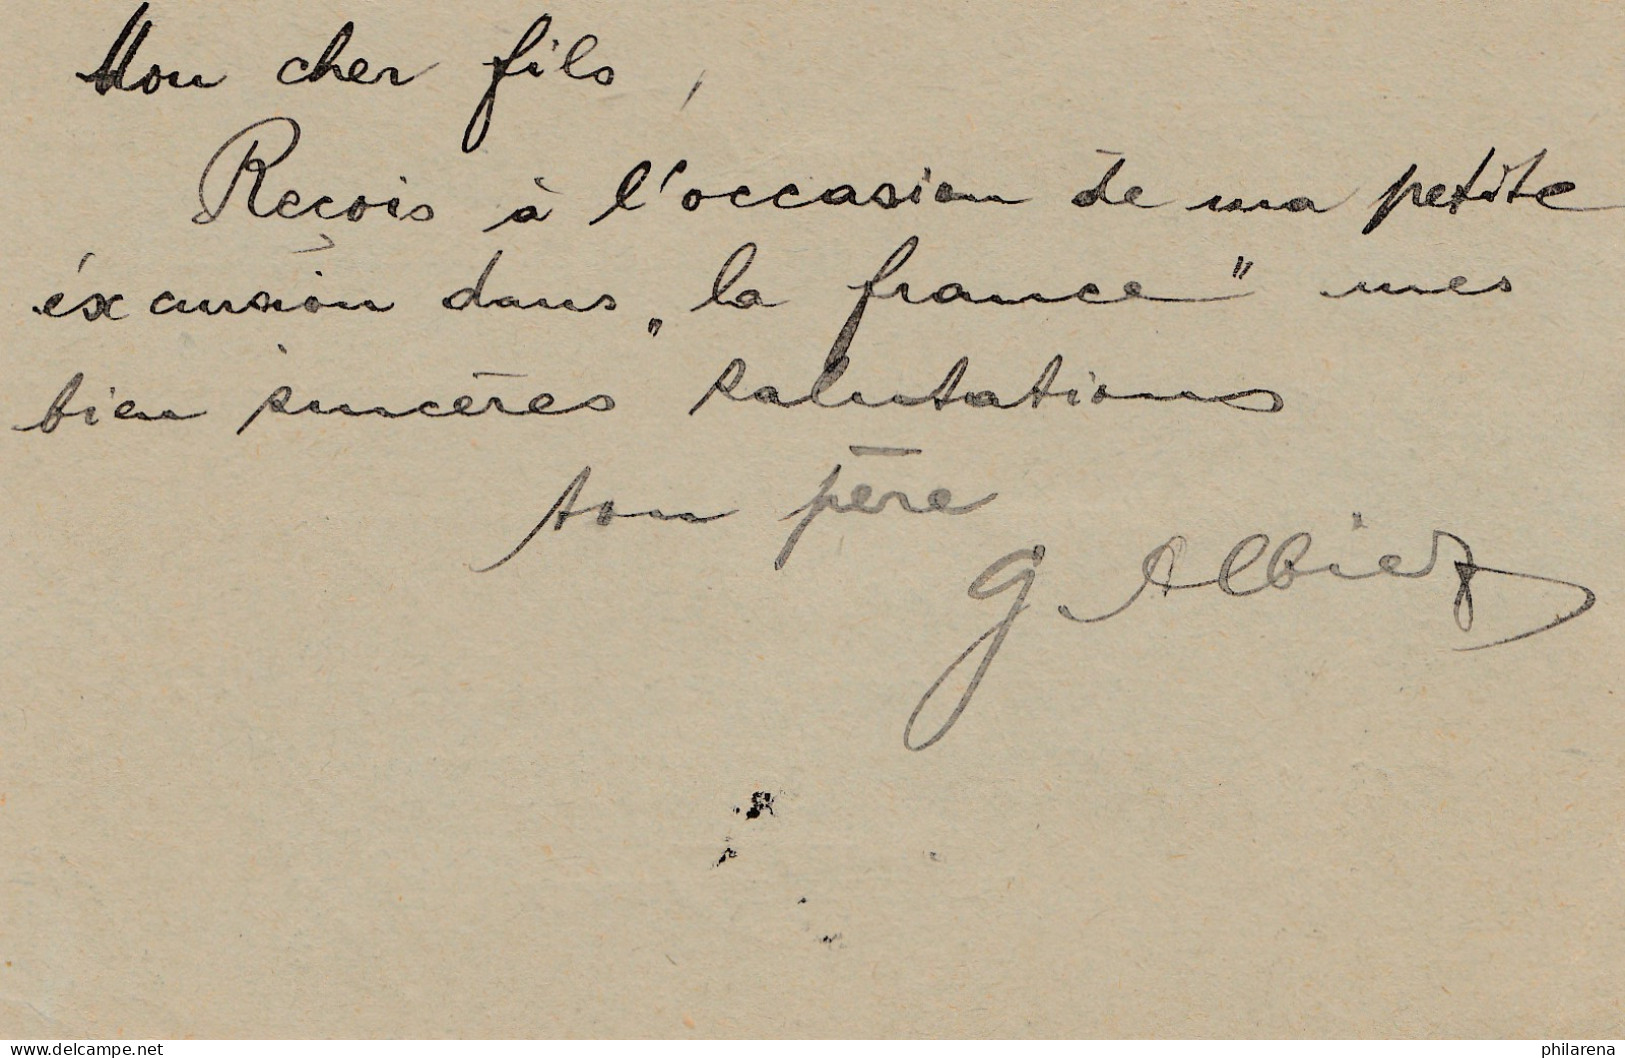 Mon cher fils,
Reçois à l'occasion de ma petite
éxcursion dans „la france" mes
bien sincères salutations
ton père
G Albiez
www.delcampe.net
philarena